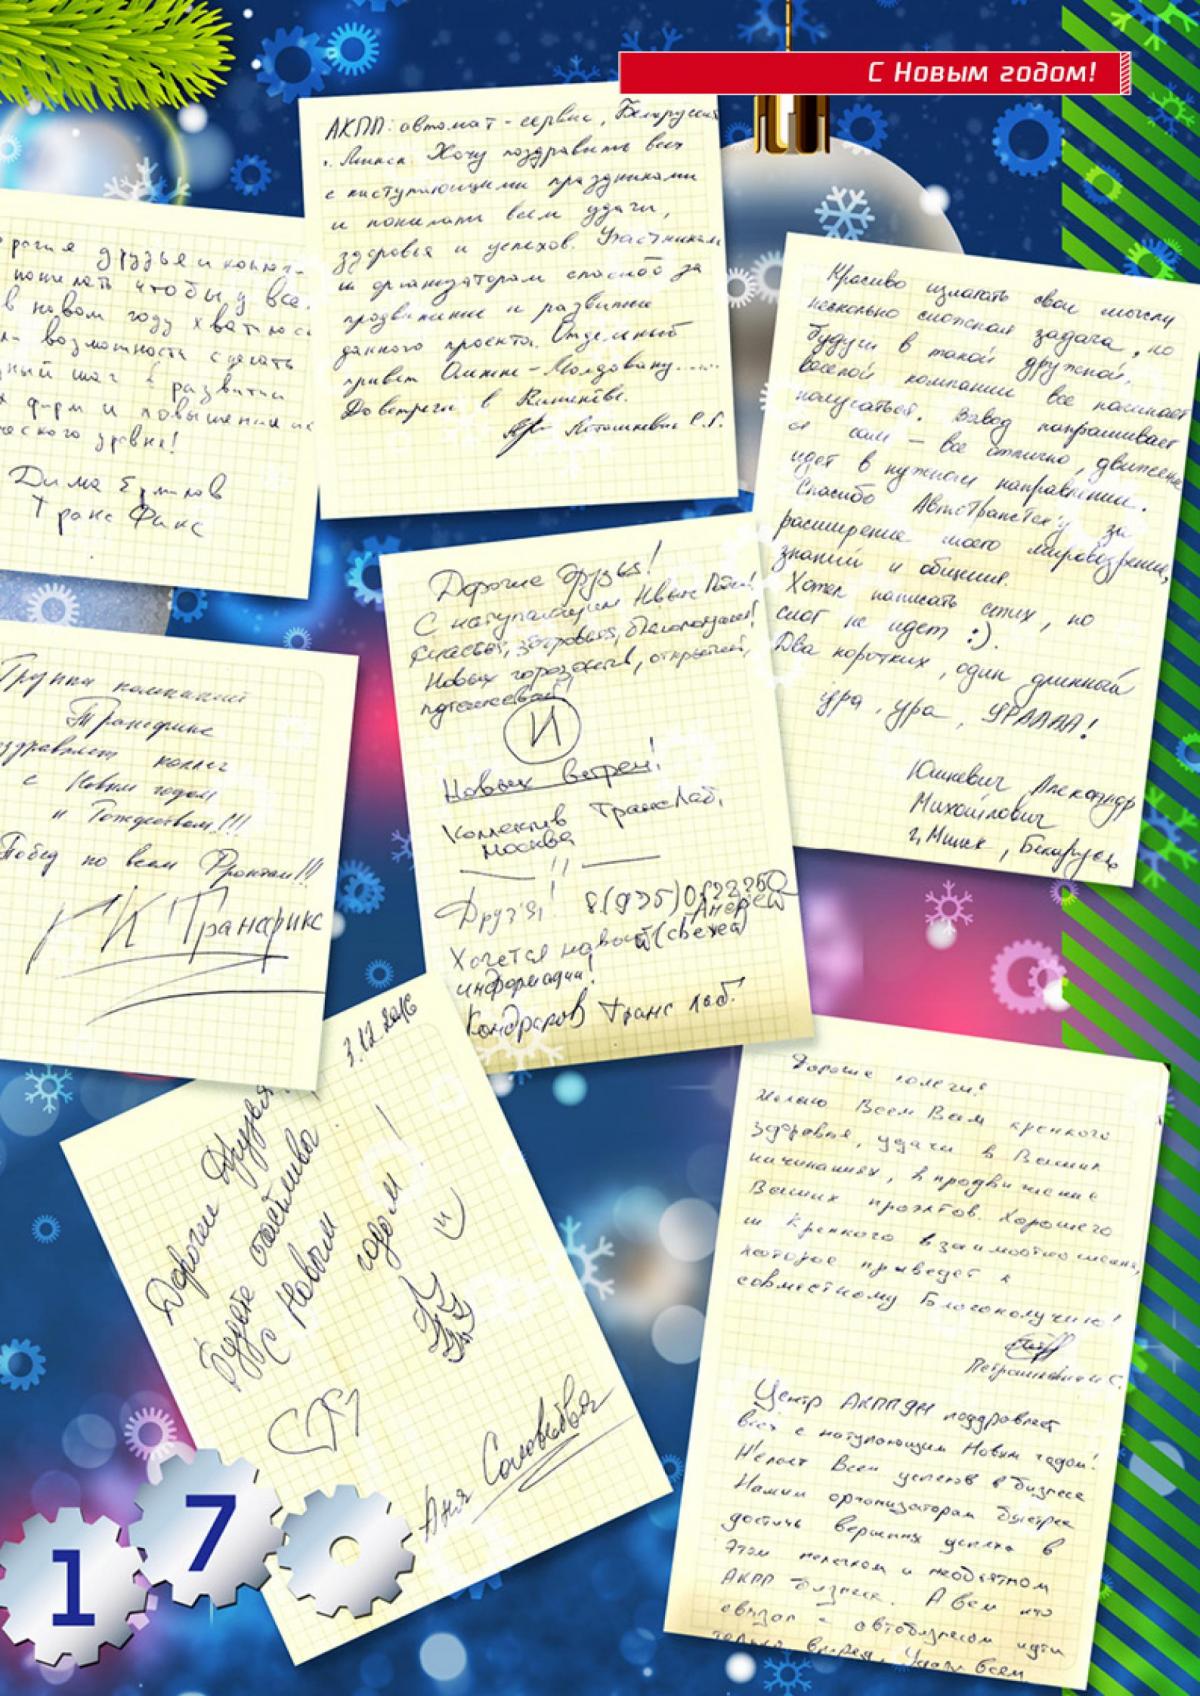 С Новым годом!
АКПП: автомат-сервис, Белорусси
г. Минск Хочу поздравить всех
с наступающими праздниками
и пожелать всем удачи,
здоровья и успехов. Участникам
и организаторам спасибо за
продвижение и развитие
данного проекта. Отдельный
привет Олегу-Молдовану......
До встречи в Кишинёве.
С.Г.
рогия друзья и колле-
пожелать чтобы у все
в новом году хватило с
возможность сделать
ный шаг в развитии
х фирм и повышение их
ческого уровня!
Дима
Транс Фикс
Красиво излагать свои мысли
несколько сложная задача, но
будучи в такой дружной,
веселой компании все начинает
получаться. Вывод напрашивает
ся сам – все отлично, движение
идет в нужном направлении.
Спасибо АвтоТрансТех'у за
расширение моего мировозрения,
знаний и общения.
Хотел написать стих, но
слог не идет :).
Два коротких, один длинный
ура, ура, УРАААА!
Юшкевич Александр
Михайлович
г. Минск, Беларусь
Дорогие друзья!
С наступающим Новым Годом!
Счастья, здоровья, благополучия!
Новых горизонтов, открытий,
путешествий!
И
Новых встреч!
Коллектив ТрансЛаб,
Москва
— // —
Друз'я! 8(935)
Андрей
Хочется новый (свежей)
информации!
Кондрашов Транс лаб.
Группа компаний
Трансфикс
оздравляет коллег
с Новым годом
и Рождеством!!!
Побед по всем Фронтам!!!
ГК Транафикс
3.12.2016
Дорогие Друзья!
Будьте счастливы
С Новым годом!
Аня Соловьёва
Дорогие колеги!
Желаю Всем Вам крепкого
здоровья, удачи в Ваших
начинаниях, в продвижение
Ваших проэктов. Хорошего
и Крепкого взаимоотношения,
которое приведет к
совместному Благополучию!
С.
Центр АКППДН поздравляет
всех с наступающим Новым годом!
Желает Всем успехов в бизнесе
Нашим организаторам быстрее
достичь вершины успеха в
Этом нелегком и необъятном
АКПП бизнесе. А всем кто
связан с автобизнесом идти
только вперед. Удачи всем
1 7